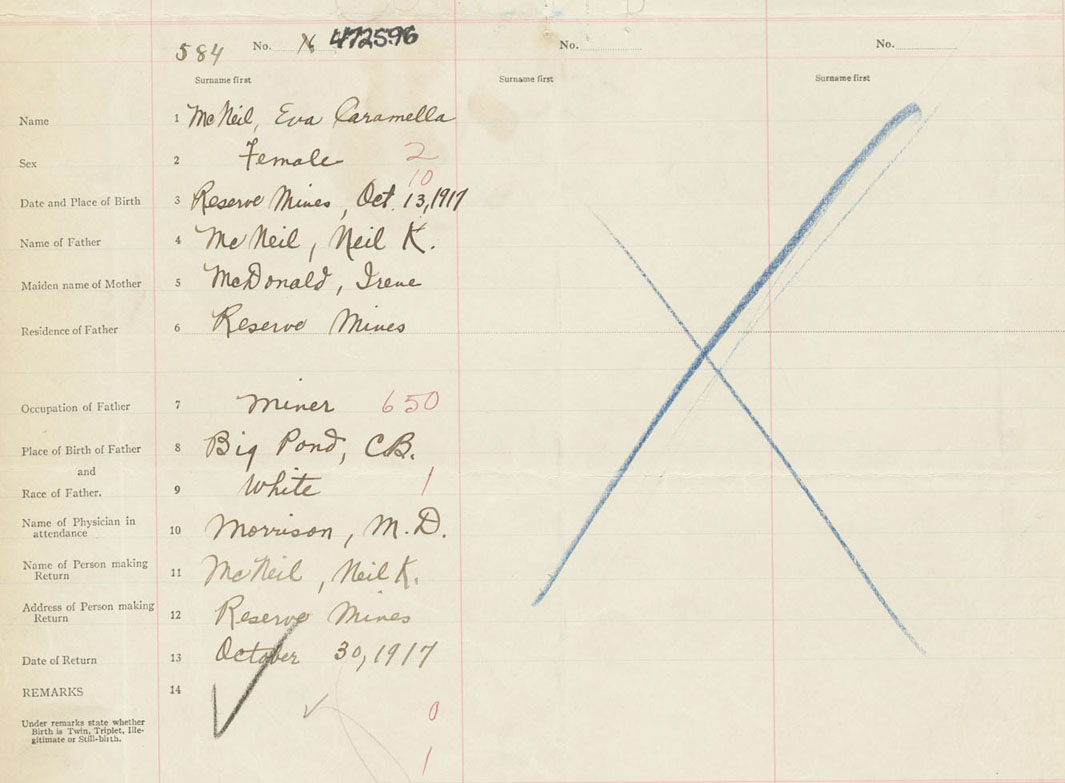 584 No. 472596 No. No.
Surname first Surname first Surname first
Name 1 McNeil, Eva Caramella
Sex 2 Female 2
10
Date and Place of Birth 3 Reserve Mines, Oct. 13, 1917
Name of Father 4 McNeil, Neil K.
Maiden name of Mother 5 McDonald, Irene
Residence of Father 6 Reserve Mines
Occupation of Father 7 Miner 650
Place of Birth of Father 8 Big Pond, C.B.
and
Race of Father. 9 White 1
Name of Physician in
attendance 10 Morrison, M.D.
Name of Person making
Return 11 McNeil, Neil K.
Address of Person making
Return 12 Reserve Mines
Date of Return 13 October 30, 1917
REMARKS 14
Under remarks state whether
Birth is Twin, Triplet, Ille-
gitimate or Still-birth.
0
1